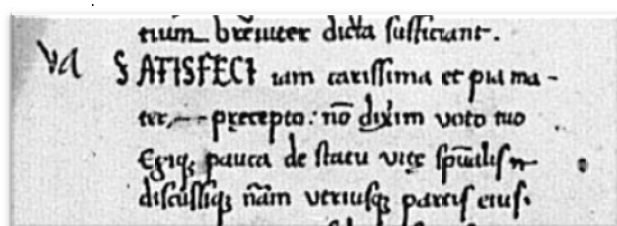 tium breuiter dicta sufficiant.
va SATISFECI iam carissima et pia ma-
ter, p̨recepto: nō dixim voto tuo
Egiq; pauca de statu vitę sp̄ualis
discussiq; n̄am vtriusq; partis eius.